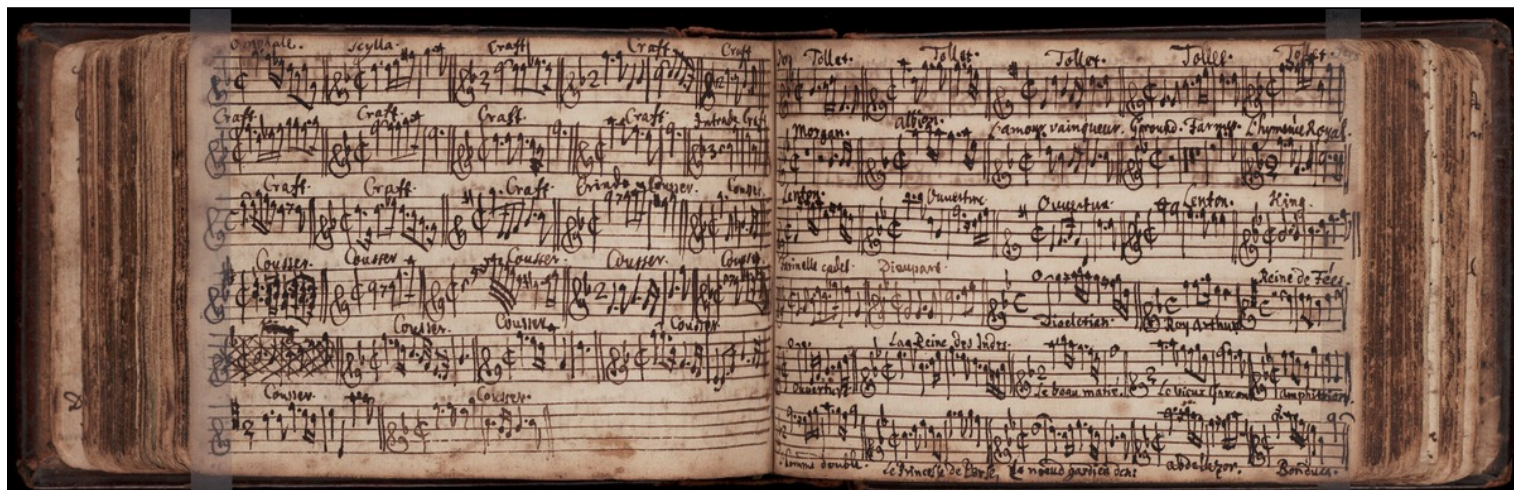 Omphalle. Scylla. Craft Craft. Craft
Craft. Craft. Craft. Craft. Intrade Craft
Craft. Craft. Craft. Cousser. Cousser.
Cousser. Cousser Cousser. Cousser. Cousser.
Cousser. Cousser. Cousser.
Cousser. Cousser.
Tollet. Tollet. Tollet. Tollet. Tollet.
Morgan. Albion. L'amour vainqueur. Ground. Farmer. L'hymenée Royal.
Lenton. Ouverture Ouverture. Lenton. King.
farinelle cadet. Dieupart. Reine de Fées.
Dioclesian. Roy Arthur
La Reine des Indes.
Ouverture Le beau matié. Le vieux Garcon amphitrion.
double. Le Princesse de Perse, Le noeud gordien abdelazor. Bonduca.